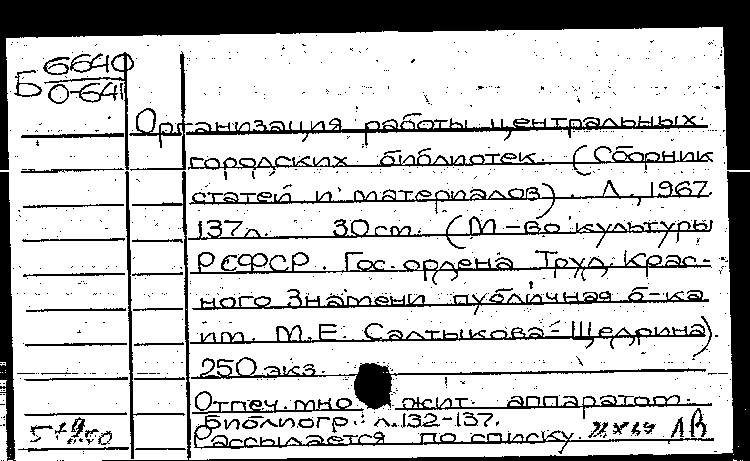 Б 6640
О-641
Организация работы центральных
городских библиотек. (Сборник
статей и материалов). Л., 1967.
137л. 30см. (М-во культуры
РСФСР. Гос. ордена Труд. Крас-
ного Знамени публичная б-ка
им. М.Е. Салтыкова-Щедрина).
250 экз.
Отпеч. мно жит. аппаратом.
Библиогр.: л.132-137.
Рассылается по списку. ЛВ